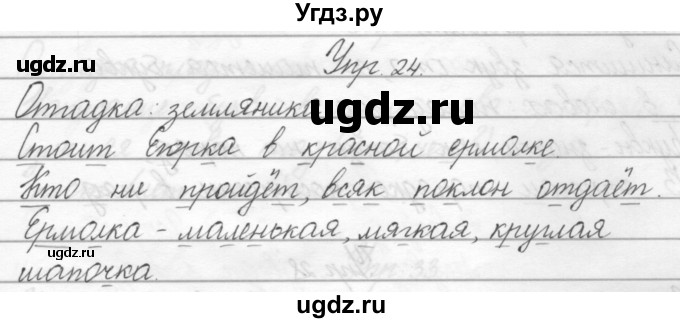 Угдз.ру
ugdz.ru
ugdz.ru
Упр. 24.
Отгадка: земляника
ugdz.ru
Стоит Егорка в красной ермолке.
Кто ни пройдёт, всяк поклон отдаёт.
ugdz.ru
ugdz.ru
Ермолка – маленькая, мягкая, круглая
шапочка.
ugdz.ru
ugdz.ru